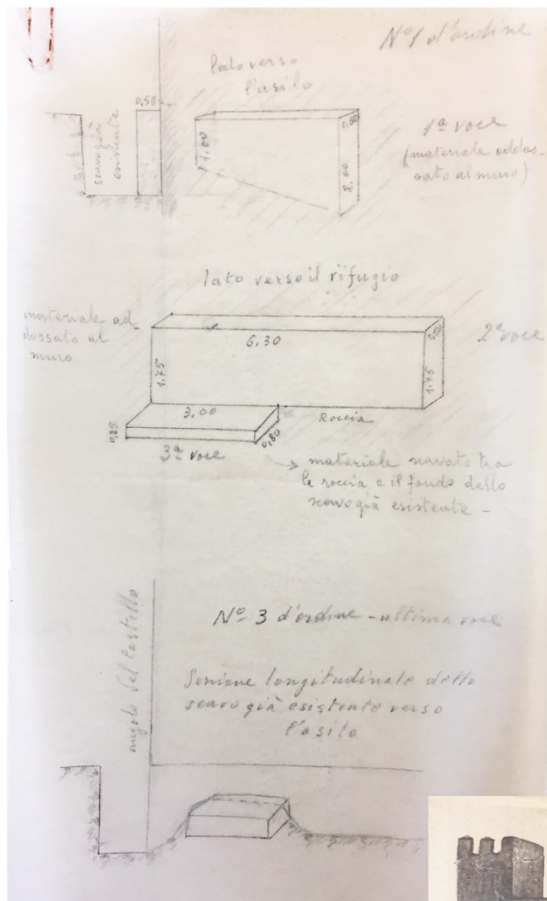 Nº 1 d'ordine
lato verso
l'asilo
0,50
scavo già
esistente
1.00
0.50
8.00
1ª voce
(materiale addos-
sato al muro)
lato verso il rifugio
materiale ad-
dossato al
muro
6.30
0,50
2ª voce
1.75
1.75
3.00
Roccia
0,25
0,80
3ª voce
materiale scavato tra
la roccia e il fondo dello
scavo già esistente -
angolo del Castello
Nº 3 d'ordine - ultima voce
Sezione longitudinale dello
scavo già esistente verso
l'asilo